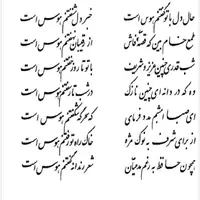 حال دل با تو گفتنم هوس است خبر دل شنفتنم هوس است
طمع خام بین که قصه فاش از رقیبان نهفتنم هوس است
شب قدری چنین عزیز و شریف با تو تا روز خفتنم هوس است
وه که دردانه‌ای چنین نازک در شب تار سفتنم هوس است
ای صبا امشبم مدد فرمای که سحرگه شکفتنم هوس است
از برای شرف به نوک مژه خاک راه تو رفتنم هوس است
همچون حافظ به رغم مدعیان شعر رندانه گفتنم هوس است